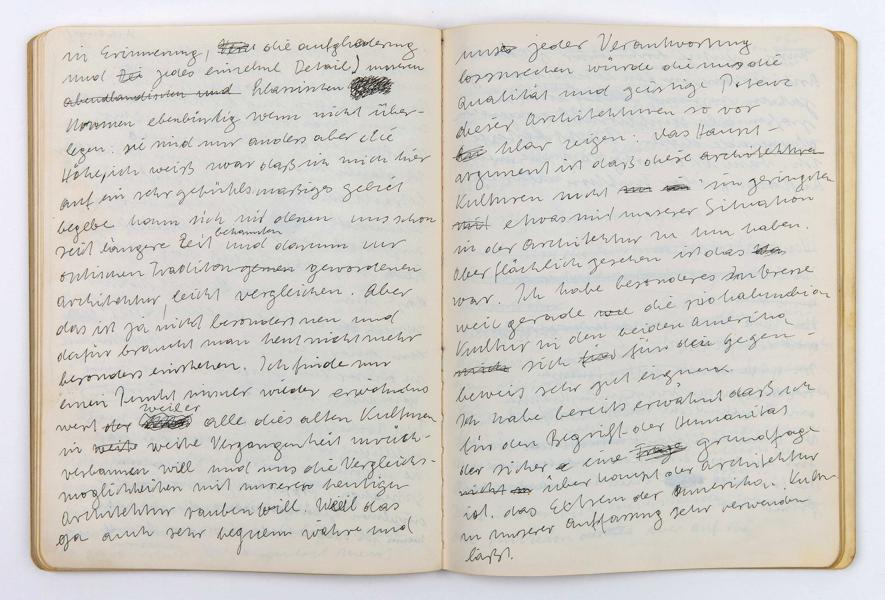 in Erinnerung, die aufgliederung
und jedes einzelne Detail) unseren
abendländischen und klassischen
Normen ebenbürtig wenn nicht über-
legen. sie sind nur anders aber die
Höhe, ich weiß zwar daß ich mich hier
auf ein sehr gefühlsmässiges gebiet
begebe kann sich mit denen uns schon
seit längere Zeit bekannten und darum zur
optischen Tradition gewordenen
architektur leicht vergleichen. Aber
das ist ja nicht besonders neu und
dafür braucht man heut nicht mehr
besonders einstehen. Ich finde nur
einen Punkt immer wieder erwähnens
wert der weil er alle dies alten Kulturen
in weite Vergangenheit zurück-
verbannen will und uns die Vergleichs-
möglichkeiten mit unserer heutigen
Architektur rauben will. Weil das
ja auch sehr bequem wäre und
uns jeder Verantwortung
lossprechen würde die uns die
Qualität und geistige Potenz
dieser Architekturen so vor
klar zeigen. das Haupt-
argument ist daß diese architektur
Kulturen nicht im geringsten
etwas mit unserer Situation
in der architektur zu tun haben.
Oberflächlich gesehen ist das
war. Ich habe besonderes Interesse
weil gerade die präkolumbian
Kultur in den beiden amerika
sich für den gegen-
beweis sehr gut eignen.
Ich habe bereits erwähnt daß ich
für den Begriff der Humanität
der sicher eine grundfage
überhaupt der Architektur
ist. das Extrem der amerikan. Kultur
in unserer auffassung sehr verwenden
läßt.